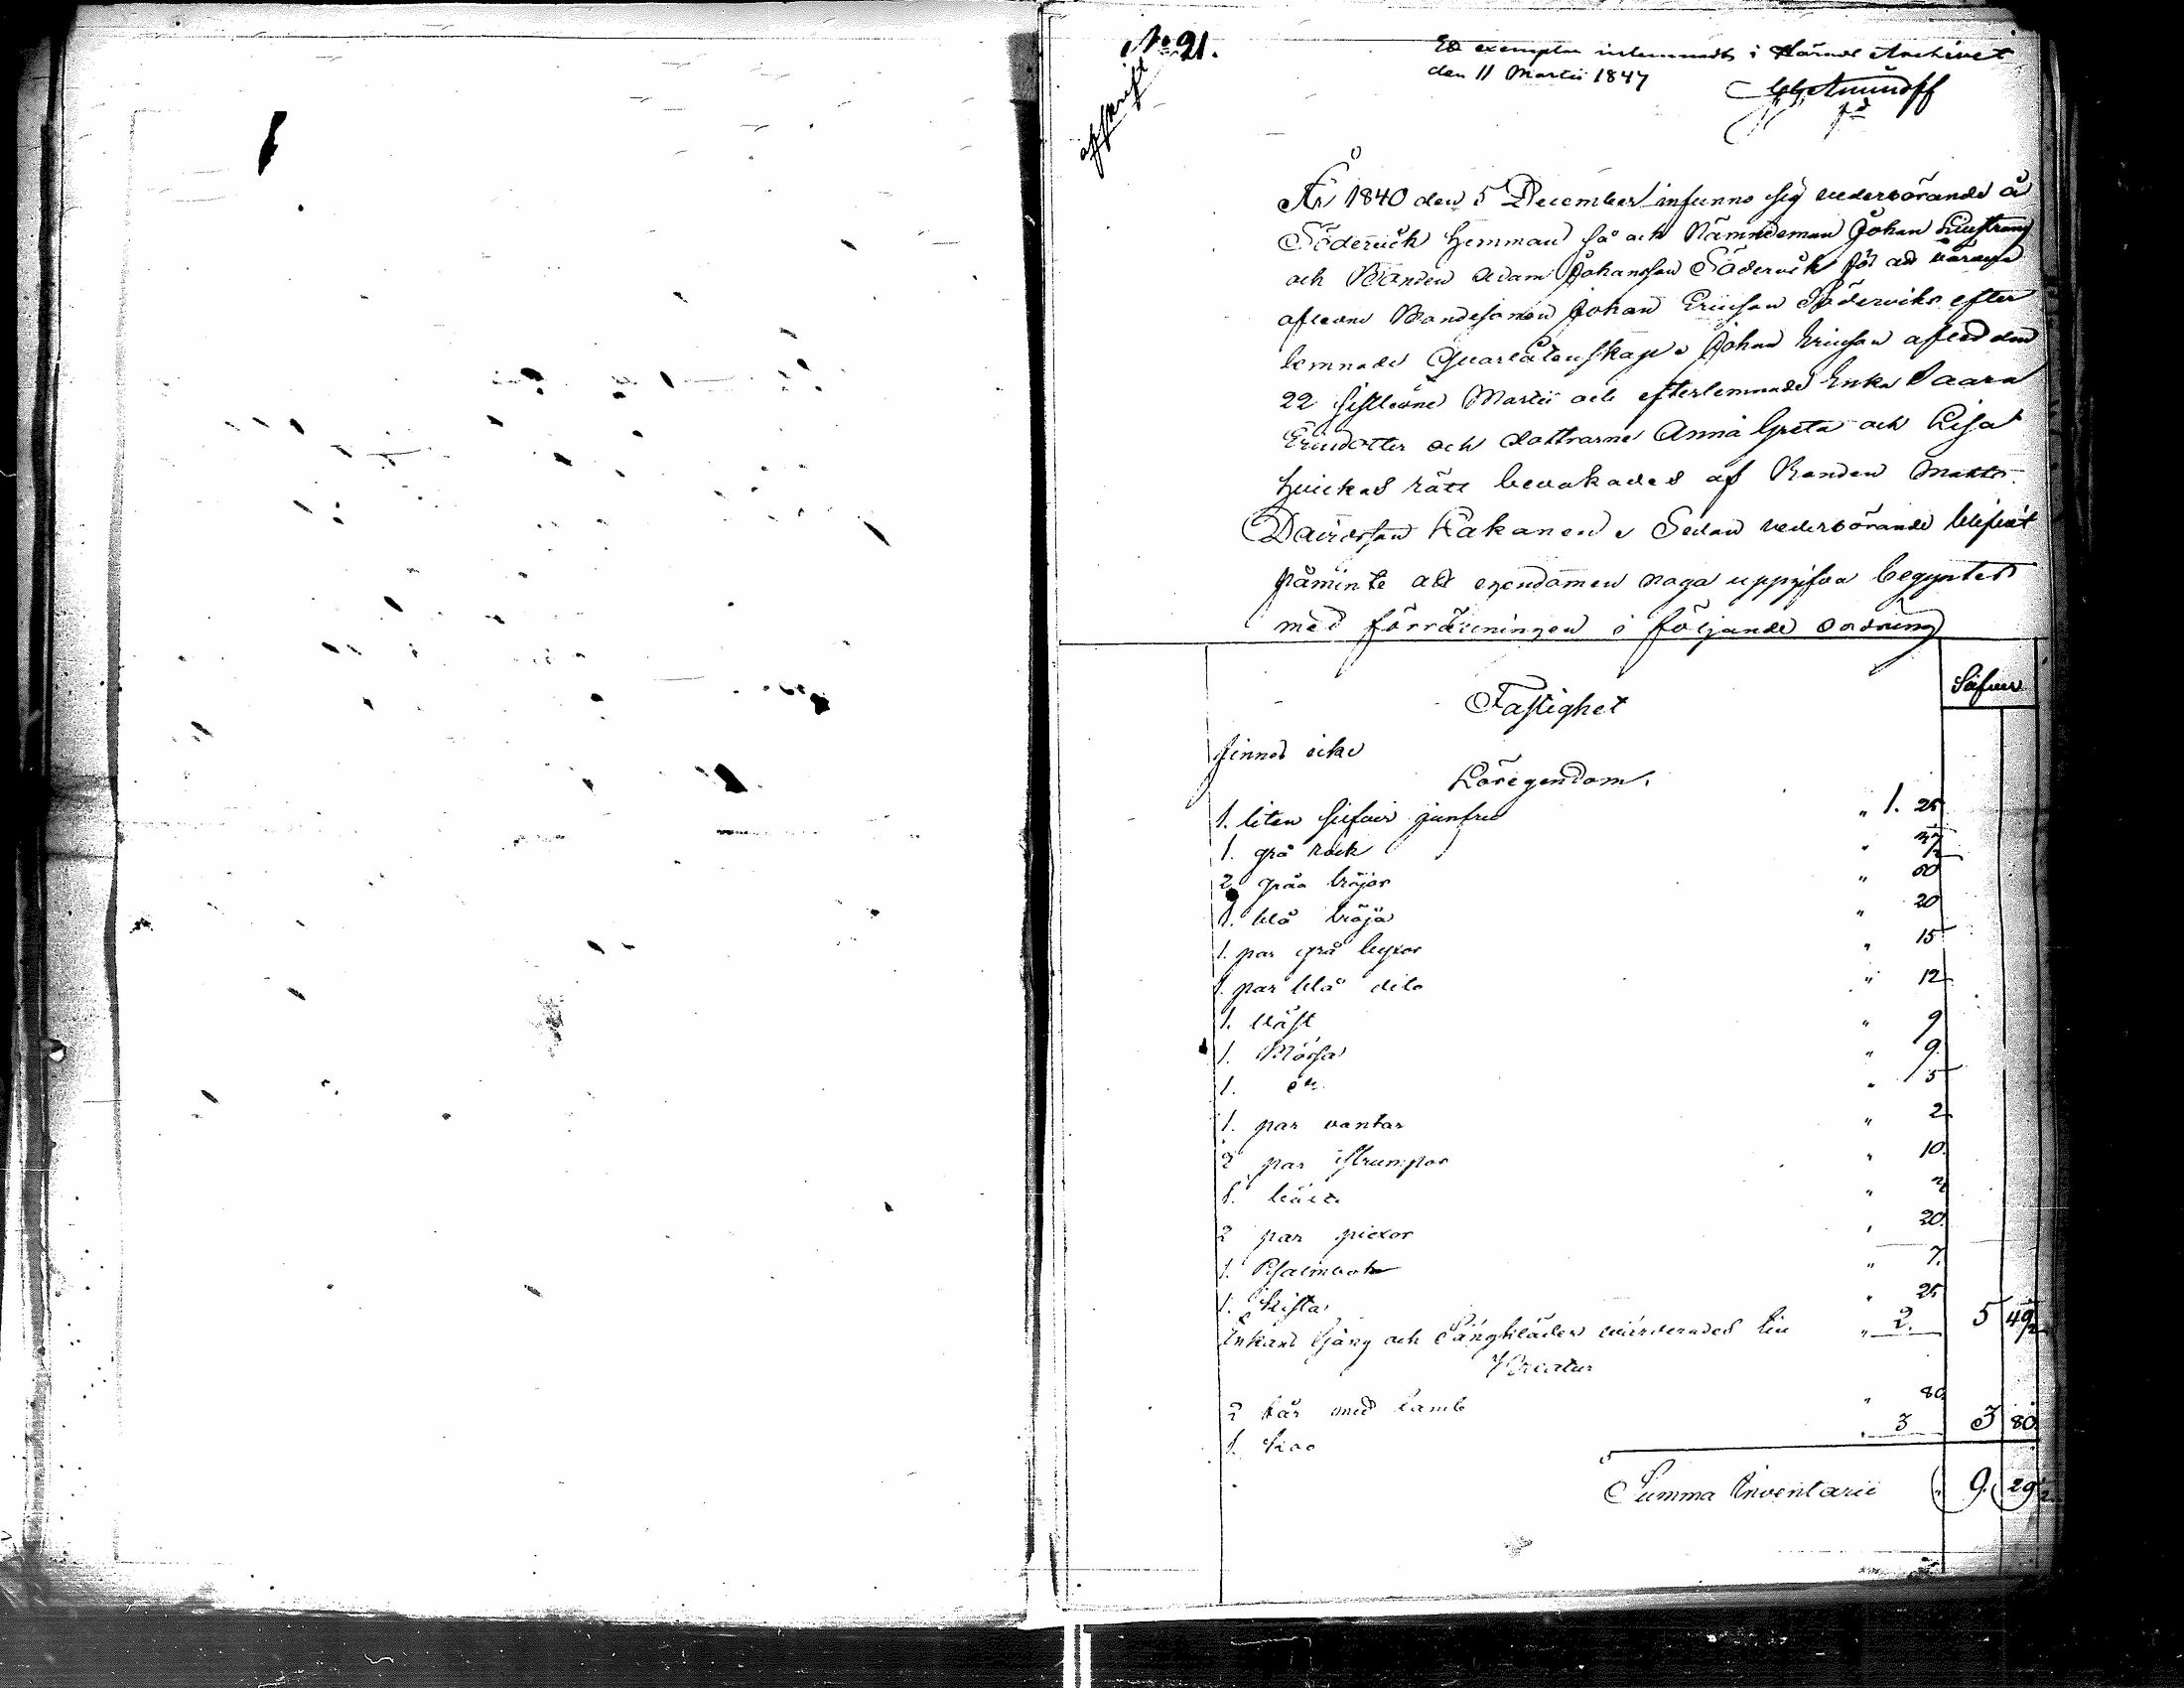 No 21.
afskrift
Ett exemplar inlemnadt i Härads Archivet
den 11 Martii 1847
År 1840 den 5 December infunno sig vederbörande å
Söderwik Hemman så och Nämndeman Johan
och Bonden Adam Johansson Söderwik för att värdera
afledne Bondesonen Johan Ericsson Söderviks efter
lemnade Quarlåtenskap. Johan Ericsson afled den
22 sistledne Martii och efterlemnade Enka Saara
Ericsdotter och dottrarne Anna Greta och Lisa
hvickas rätt bevakades af Bonden Matts
Davidsson Kakanen. Sedan vederbörande blifwit
påminte att egendomen noga uppgifva begyntes
med förräkningen i följande ordning
Silfwer
Fastighet
finnes icke
Lösegendom.
1. liten silfwer " 1. 25
1. grå rock " 37 1/2
2 gråa tröjor " 60
1. blå tröja " 20
1. par grå byxor " 15
1. par blå dito " 12
1. Väst " 9
1. Mössa " 9.
1. dn " 5
1. par vantar " 2
2 par strumpor " 10.
1. bälte "
2 par piexor " 20.
1. Psalmbok " 7.
1. kista " 25
Enkans Gång och Sängkläder värderades till " 2. 5 49 1/2
Kreatur
2 får med lamb " 80
1. koo " 3 3 80.
Summa Inventarii " 9. 29 1/2